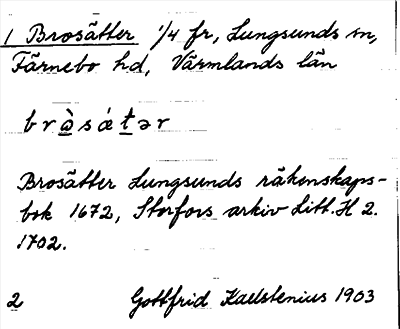 1 Brosätter 1/4 fr, Lungsunds sn,
Färnebo hd, Värmlands län
bròsǽtər
Brosätter Lungsunds räkenskaps-
bok 1672, Storfors arkiv Litt. H 2.
1702.
2 Gottfrid Kallstenius 1903